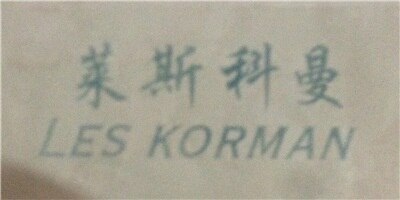 莱斯科曼
LES KORMAN